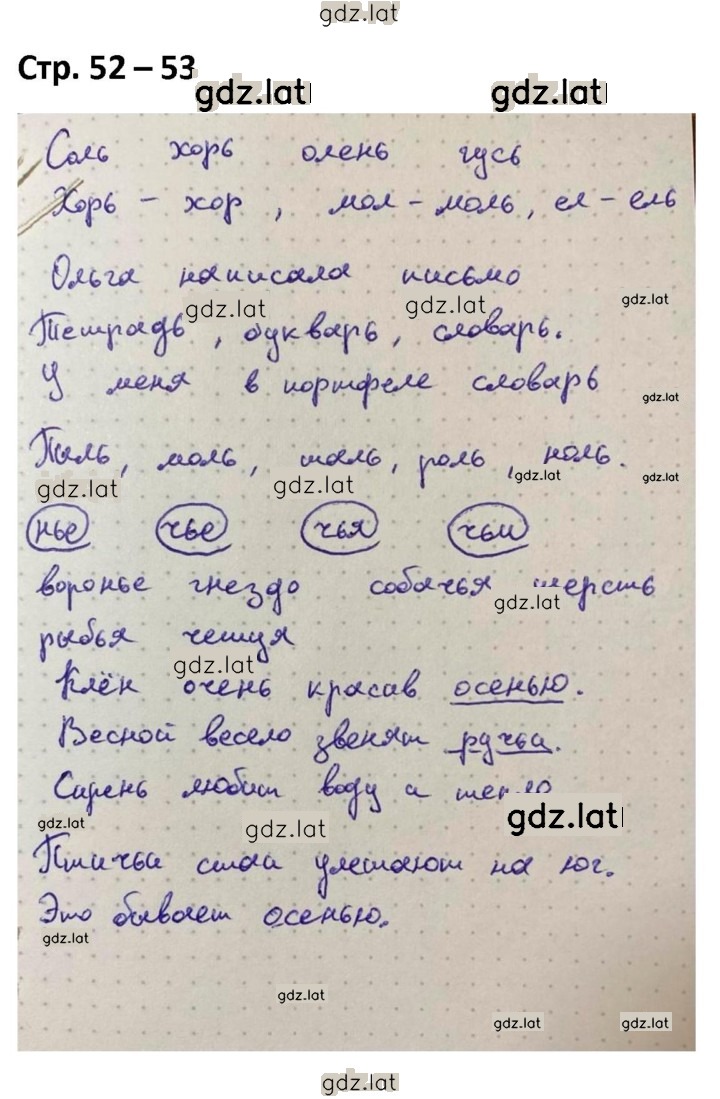 gdz.lat
Стр. 52 – 53
gdz.lat gdz.lat
Соль хорь олень гусь
Хорь - хор, мол - моль, ел - ель
Ольга написала письмо
gdz.lat gdz.lat gdz.lat
Тетрадь, букварь, словарь.
У меня в портфеле словарь
gdz.lat
Пыль, моль, шаль, роль, ноль.
gdz.lat gdz.lat gdz.lat gdz.lat
нье чье чья чьи
воронье гнездо собачья шерсть
gdz.lat
рыбья чешуя
gdz.lat
Клён очень красив осенью.
Весной весело звенят ручьи.
Сирень любит воду и тепло
gdz.lat gdz.lat gdz.lat
Птичьи стаи улетают на юг.
Это бывает осенью.
gdz.lat
gdz.lat
gdz.lat gdz.lat
gdz.lat